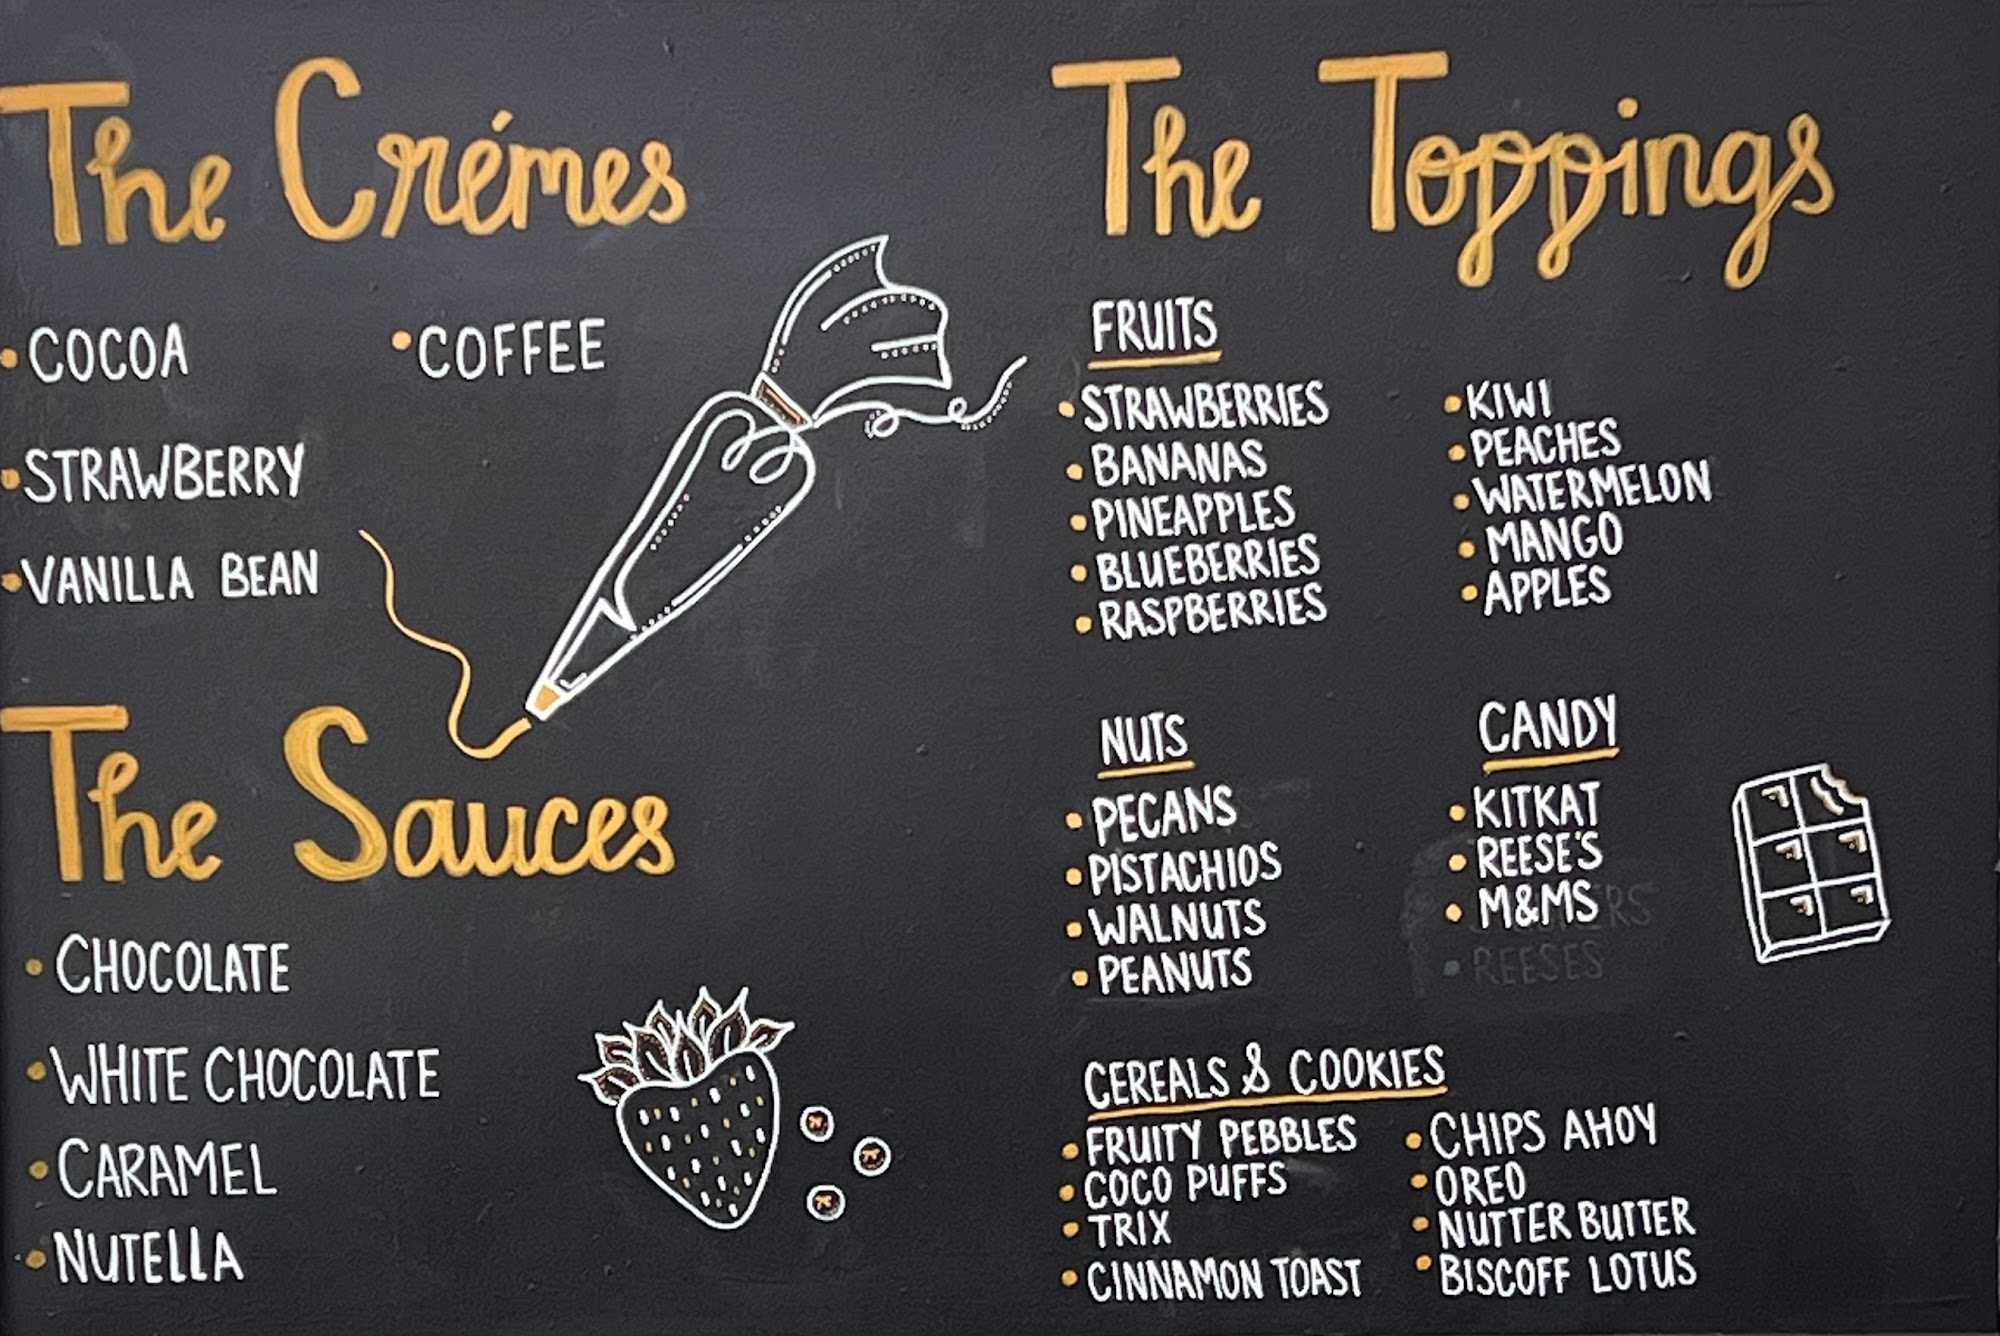 The Crémes
COCOA
COFFEE
STRAWBERRY
VANILLA BEAN
The Sauces
CHOCOLATE
WHITE CHOCOLATE
CARAMEL
NUTELLA
The Toppings
FRUITS
STRAWBERRIES
BANANAS
PINEAPPLES
BLUEBERRIES
RASPBERRIES
KIWI
PEACHES
WATERMELON
MANGO
APPLES
NUTS
PECANS
PISTACHIOS
WALNUTS
PEANUTS
CANDY
KITKAT
REESE'S
M&MS
REESES
CEREALS & COOKIES
FRUITY PEBBLES
COCO PUFFS
TRIX
CINNAMON TOAST
CHIPS AHOY
OREO
NUTTER BUTTER
BISCOFF LOTUS